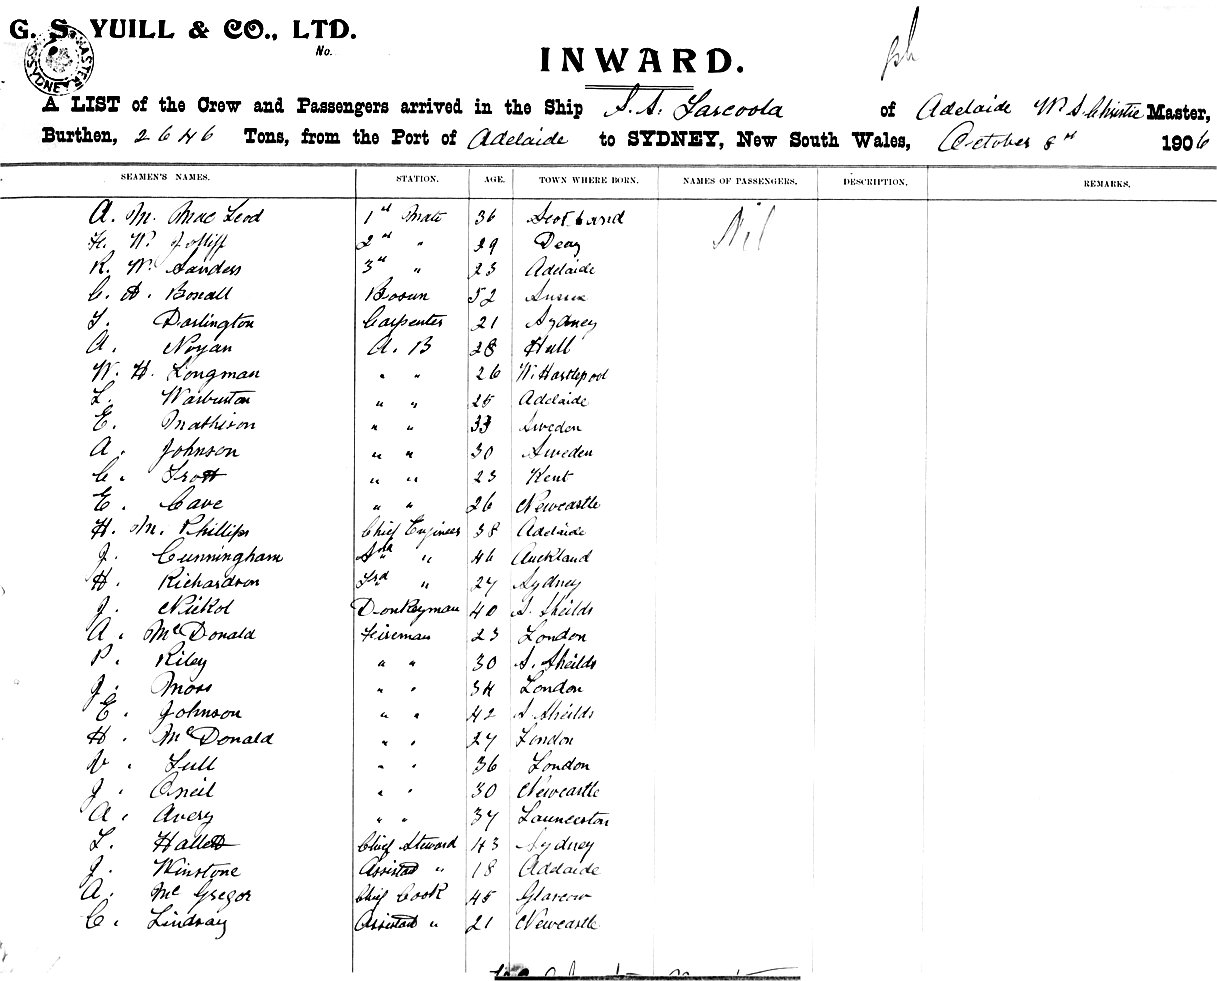 G. S. YUILL & CO., LTD.
No.
INWARD.
A LIST of the Crew and Passengers arrived in the Ship S.S. Tarcoola of Adelaide W. S. Christie Master,
Burthen, 2646 Tons, from the Port of Adelaide to SYDNEY, New South Wales, October 8th 1906
SEAMEN'S NAMES. STATION. AGE. TOWN WHERE BORN. NAMES OF PASSENGERS. DESCRIPTION. REMARKS.
A. M. Mac Leod 1st Mate 36 Scotland Nil
W. 2nd " 29
R. W. Sanders 3rd " 23 Adelaide
C. A. Bonall Bosun 52 Sussex
T. Darlington Carpenter 21 Sydney
A. Noyan A. B 28 Hull
W. H. Longman " " 26 W. Hartlepool
L. Warburton " " 25 Adelaide
E. Mathison " " 33 Sweden
A. Johnson " " 30 Sweden
C. Trott " " 23 Kent
E. Cave " " 26 Newcastle
H. M. Phillips Chief Engineer 38 Adelaide
J. Cunningham 2nd " 46 Auckland
H. Richardson 3rd " 27 Sydney
J. Nickol Donkeyman 40 S. Sheilds
A. McDonald Feireman 23 London
P. Riley " " 30 S. Sheilds
J. Moss " " 34 London
E. Johnson " " 42 S Sheilds
H. McDonald " " 27 London
Lull " " 36 London
J. Oneil " " 30 Newcastle
A. Avery " " 37 Launceston
L. Hallett Chief Steward 43 Sydney
J. Winstone Assistad " 18 Adelaide
A. Mc Gregor Chief Cook 45 Glascow
C. Lindsay Assistad " 21 Newcastle